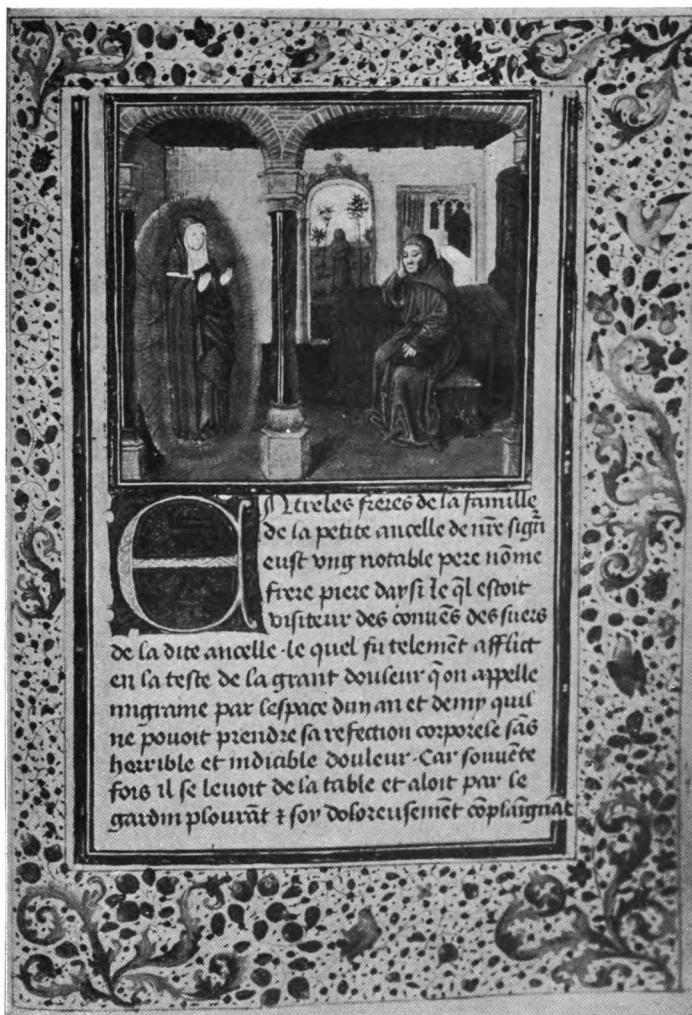 Entre les freres de la famille
de la petite ancelle de nr̄e sign̄
eust vng notable pere nōme
frere piere daysi le q̄l estoit
visiteur des conuēs des suers
de la dite ancelle · le quel fu telemēt afflict
en la teste de la grant douleur q̄ on appelle
migrame par lespace dun an et demy quil
ne pouoit prendre sa refection corporele sās
horrible et indicible douleur · Car souuēte
fois il se leuoit de la table et aloit par le
gardin plourāt ⁊ soy doloreusemēt cōplaignāt